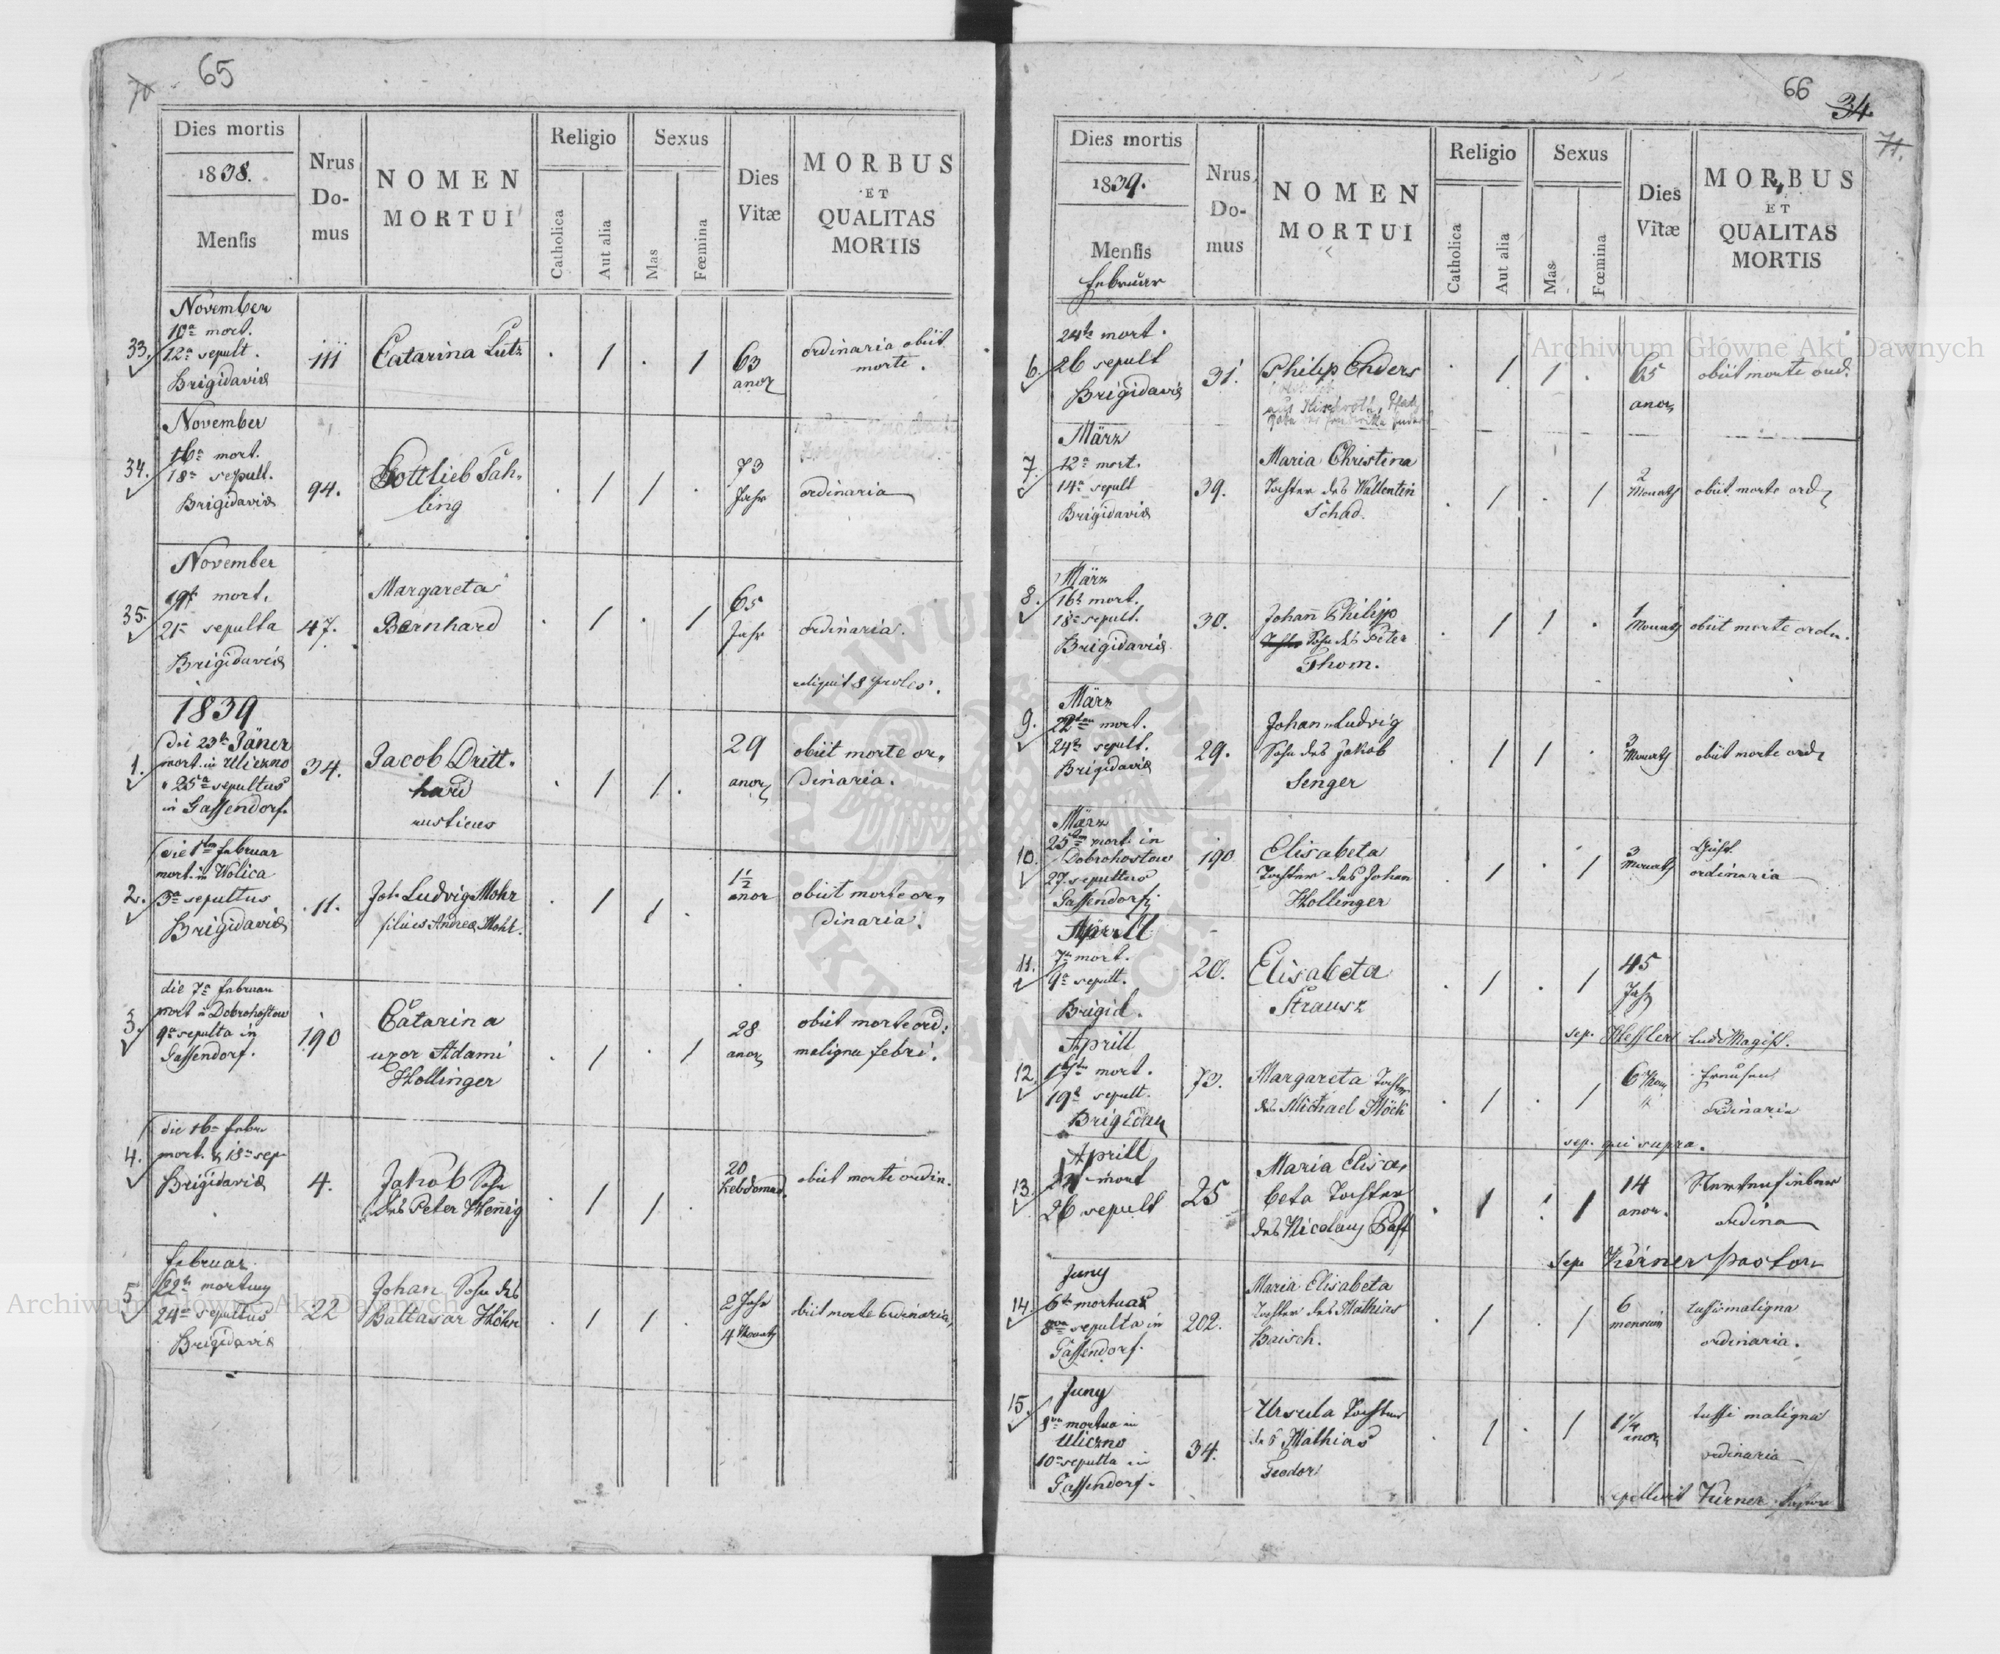 65
70
Dies mortis
1838.
Mensis
Nrus
Do-
mus
NOMEN
MORTUI
Religio
Catholica
Aut alia
Sexus
Mas
Fœmina
Dies
Vitæ
MORBUS
ET
QUALITAS
MORTIS
33.
November
10a mort.
12a sepult.
Brigidavia
111
Catarina Lutz
63
anor
ordinaria obiit
morte.
34.
November
16a mort.
18a sepult.
Brigidavia
94.
Gottlieb Säh-
ling
73
Jahr
ordinaria
35.
November
19t mort.
21a sepulta
Brigidavia
47.
Margareta
Bernhard
65
Jahr
ordinaria.
reliquit 8 proles.
1839
1.
die 23t Jäner
mort. in Uliczno
25a sepultus
in Gassendorf.
34.
Jacob Dritt-
hard
rusticus
29
anor
obiit morte or-
dinaria.
2.
die 1ten februar
mort. in Wolica
3a sepultus
Brigidavia
11.
Joh. Ludvig Mohr
filius Andrea Mohr.
1 1/2
anor
obiit morte or-
dinaria.
3.
die 7a februar
mort. in Dobrohostow
9a sepulta in
Gassendorf.
190
Catarina
uxor Adami
Hollinger
28
anor
obiit morte ord:
maligna febri.
4.
die 16a febr.
mort. & 18a sep.
Brigidavia
4.
Jakob Sohn
des Peter König
20
hebdomad.
obiit morte ordin.
5.
februar
22t mortuus
24a sepultus
Brigidavia
22
Johan Sohn des
Baltasar Höhn
2 Jahr
4 Monath
obiit morte ordinaria
66
34.
71.
Dies mortis
1839.
Mensis
februar
Nrus
Do-
mus
NOMEN
MORTUI
Religio
Catholica
Aut alia
Sexus
Mas
Fœmina
Dies
Vitæ
MORBUS
ET
QUALITAS
MORTIS
6.
24t mort.
26 sepult
Brigidavia
31.
Philip Enders
65
anor
obiit morte ord.
7.
März
12a mort.
14a sepult
Brigidavia
39.
Maria Christina
Tochter des Wallentin
Schad.
2
Monath
obiit morte ord
8.
März
16t mort.
18a sepult.
Brigidavia
30.
Johan Philipp
Sohn des Peter
Thom.
1
Monath
obiit morte ordn.
9.
März
22ten mort.
24t sepult.
Brigidavia
29.
Johan Ludvig
Sohn des Jakob
Senger
3
Monath
obiit morte ord
10.
März
25ten mort. in
Dobrohostow
27. sepultus
Gassendorf
190
Elisabeta
Tochter des Johan
Hollinger
3
Monath
ordinaria
11.
Aprill
7a mort.
9a sepult.
Brigid.
20.
Elisabeta
Strausz
45
Jahr
sep. Hessler Ludi Magist.
12.
Aprill
17t mort.
19t sepult.
Brigidau
73.
Margareta Tochter
des Michael Möck
6
ordinaria
sep. qui supra.
13.
Aprill
24a mort
26 sepult
25
Maria Elisa-
beta Tochter
des Nicolaus Paff
14
anor.
Nervenfieber
ordina
sep. Kirner Pastor
14.
Juny
6t mortua
8va sepulta in
Gassendorf.
202.
Maria Elisabeta
Tochter des Mathias
Baisch.
6
mensium
tussi maligna
ordinaria.
15.
Juny
8va mortua in
Uliczno
10a sepulta in
Gassendorf.
34.
Ursula Tochter
des Mathias
Teodor
1 1/4
anor
tussi maligna
ordinaria
sepelivit Kirner Pastor
Archiwum Główne Akt Dawnych
Archiwum Główne Akt Dawnych